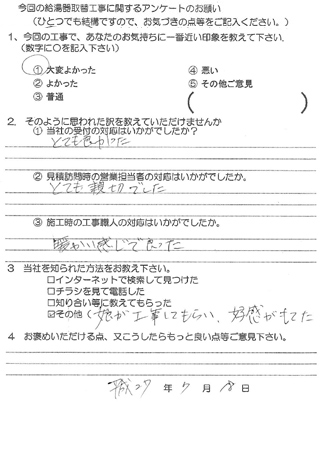 今回の給湯器取替工事に関するアンケートのお願い
(ひとつでも結構ですので、お気づきの点等をご記入ください。)
1、今回の工事で、あなたのお気持ちに一番近い印象を教えて下さい。
(数字に○を記入下さい)
① 大変よかった ④ 悪い
② よかった ⑤ その他ご意見
③ 普通 ( )
2. そのように思われた訳を教えていただけませんか
① 当社の受付の対応はいかがでしたか?
とても良かった
② 見積訪問時の営業担当者の対応はいかがでしたか。
とても親切でした
③ 施工時の工事職人の対応はいかがでしたか。
暖かい感じで良かった
3 当社を知られた方法をお教え下さい。
□インターネットで検索して見つけた
□チラシを見て電話した
□知り合い等に教えてもらった
☑その他 (娘が工事してもらい、好感がもてた
4 お褒めいただける点、又こうしたらもっと良い点等ご意見下さい。
平成27年 7月 18日